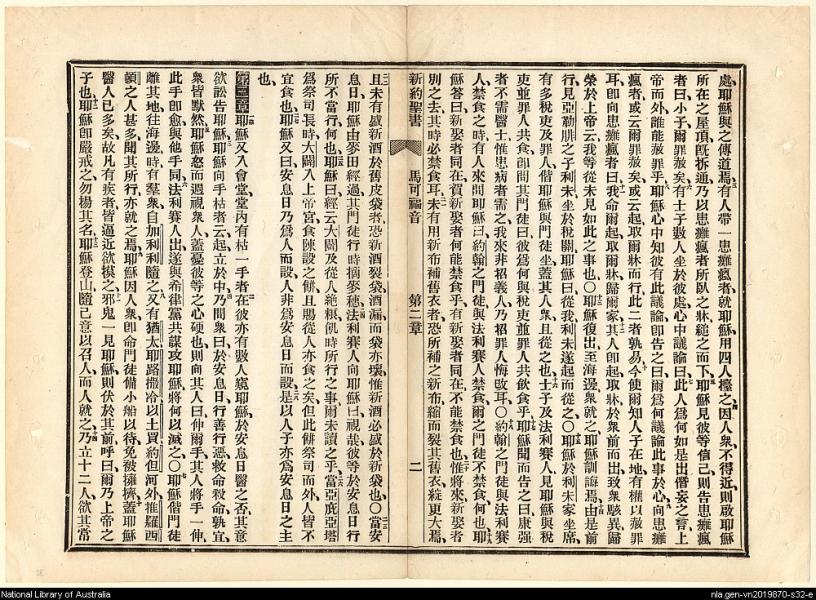 處、耶穌與之傳道焉、有人帶一患癱瘋者、就耶穌、用四人擡之、因人衆、不得近、則啟耶穌
所在之屋頂、既拆通、乃以患癱瘋者所臥之牀、縋之而下、耶穌見彼等信己、則告患癱瘋
者曰、小子、爾罪赦矣、有士子數人坐於彼處、心中議論曰、此人爲何如是出僭妄之言、上
帝而外、誰能赦罪乎、耶穌心中知彼有此議論、即告之曰、爾爲何議論此事於心、向患癱
瘋者、或云爾罪赦矣、或云起取爾牀而行、此二者孰易、今使爾知人子在地有權以赦罪
耳、即向患癱瘋者曰、我命爾起、取爾牀歸爾家、其人即起、取牀於衆前而出、致衆駭異、歸
榮於上帝、云、我等從未見如此之事也、○耶穌復出至海邊、衆就之、耶穌訓誨焉、由是前
行、見亞勒腓之子利未坐於稅關、耶穌曰、從我、利未遂起而從之、○耶穌於利未家坐席、
有多稅吏及罪人、偕耶穌與門徒坐、蓋其人衆、且從之也、士子及法利賽人、見耶穌與稅
吏並罪人共食、即問其門徒曰、彼爲何與稅吏並罪人共飲食乎、耶穌聞而告之曰、康强
者不需醫士、惟患病者需之、我來非招義人、乃招罪人悔改耳、○約翰之門徒與法利賽
人、禁食之時、有人來問耶穌曰、約翰之門徒與法利賽人禁食、爾之門徒不禁食、何也、耶
穌答曰、新娶者同在、賀新娶者何能禁食乎、有新娶者同在、不能禁食也、惟將來新娶者
別之去、其時必禁食耳、未有用新布補舊衣者、恐所補之新布縮而裂其舊衣、綻更大焉、
新約聖書 馬可福音 第二章 二
且未有盛新酒於舊皮袋者、恐新酒裂袋、酒漏而袋亦壞、惟新酒必盛於新袋也、○當安
息日、耶穌由麥田經過、其門徒行時摘麥穗、法利賽人向耶穌曰、視哉、彼等於安息日行
所不當行、何也、耶穌曰、經云大闢及從人絶糧飢時所行之事、爾未讀之乎、當亞庇亞塔
爲祭司長時、大闢入上帝宮、食陳設之餅、且賜從人亦食之矣、但此餅祭司而外、人皆不
宜食也、耶穌又曰、安息日乃爲人而設、人非爲安息日而設、是以人子亦爲安息日之主
也、
第三章 耶穌又入會堂、堂內有枯一手者在彼、亦有數人窺耶穌於安息日醫之否、其意
欲訟告耶穌、耶穌向手枯者云、起立於中、乃問衆曰、於安息日行善行惡、救命殺命、孰宜、
衆皆默然、耶穌怒而週視衆人、蓋憂彼等之心硬也、則向其人曰、伸爾手、其人將手一伸、
此手即愈、與他手同、法利賽人出、遂與希律黨共謀攻耶穌、將何以滅之、○耶穌偕門徒
離其地往海邊、時有羣衆自加利利隨之、又有猶太、耶路撒冷、以土買、約但河外、推羅西
頓之人甚多、聞其所行、亦就之焉、耶穌因人衆、即命門徒備小船以待、免被擁擠、蓋耶穌
醫人已多矣、故凡有疾者、皆逼近欲摸之、邪鬼一見耶穌、則伏於其前、呼曰、爾乃上帝之
子也、耶穌即嚴戒之、勿揚其名、耶穌登山、隨己意以召人、而人就之、乃立十二人、欲其常
National Library of Australia
nla.gen-vn2019870-s32-e